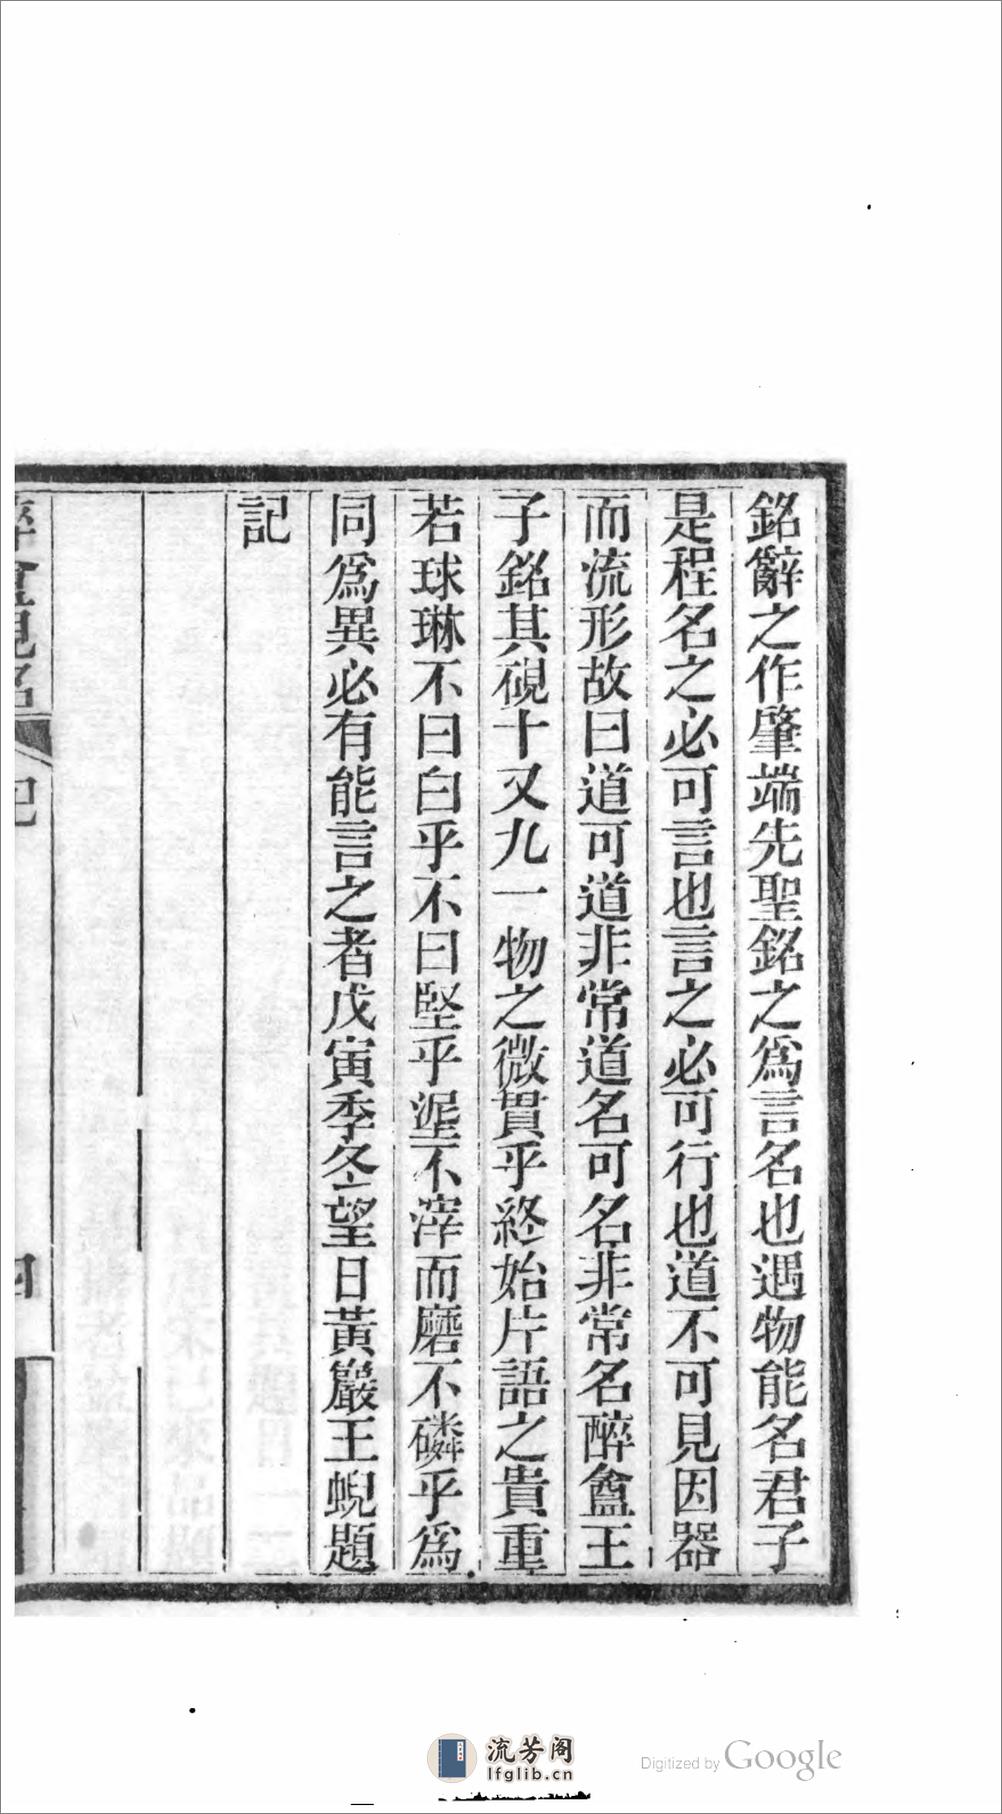 銘辭之作肇端先聖銘之爲言名也遇物能名君子
是程名之必可言也言之必可行也道不可見因器
而流形故曰道可道非常道名可名非常名醉盦王
子銘其硯十又九一物之微貫乎終始片語之貴重
若球琳不曰白乎不曰堅乎涅不滓而磨不磷乎爲
同爲異必有能言之者戊寅季冬望日黃巖王蜺題
記
醉盦硯銘
記
四
流芳阁
lfglib.cn
Digitized by Google